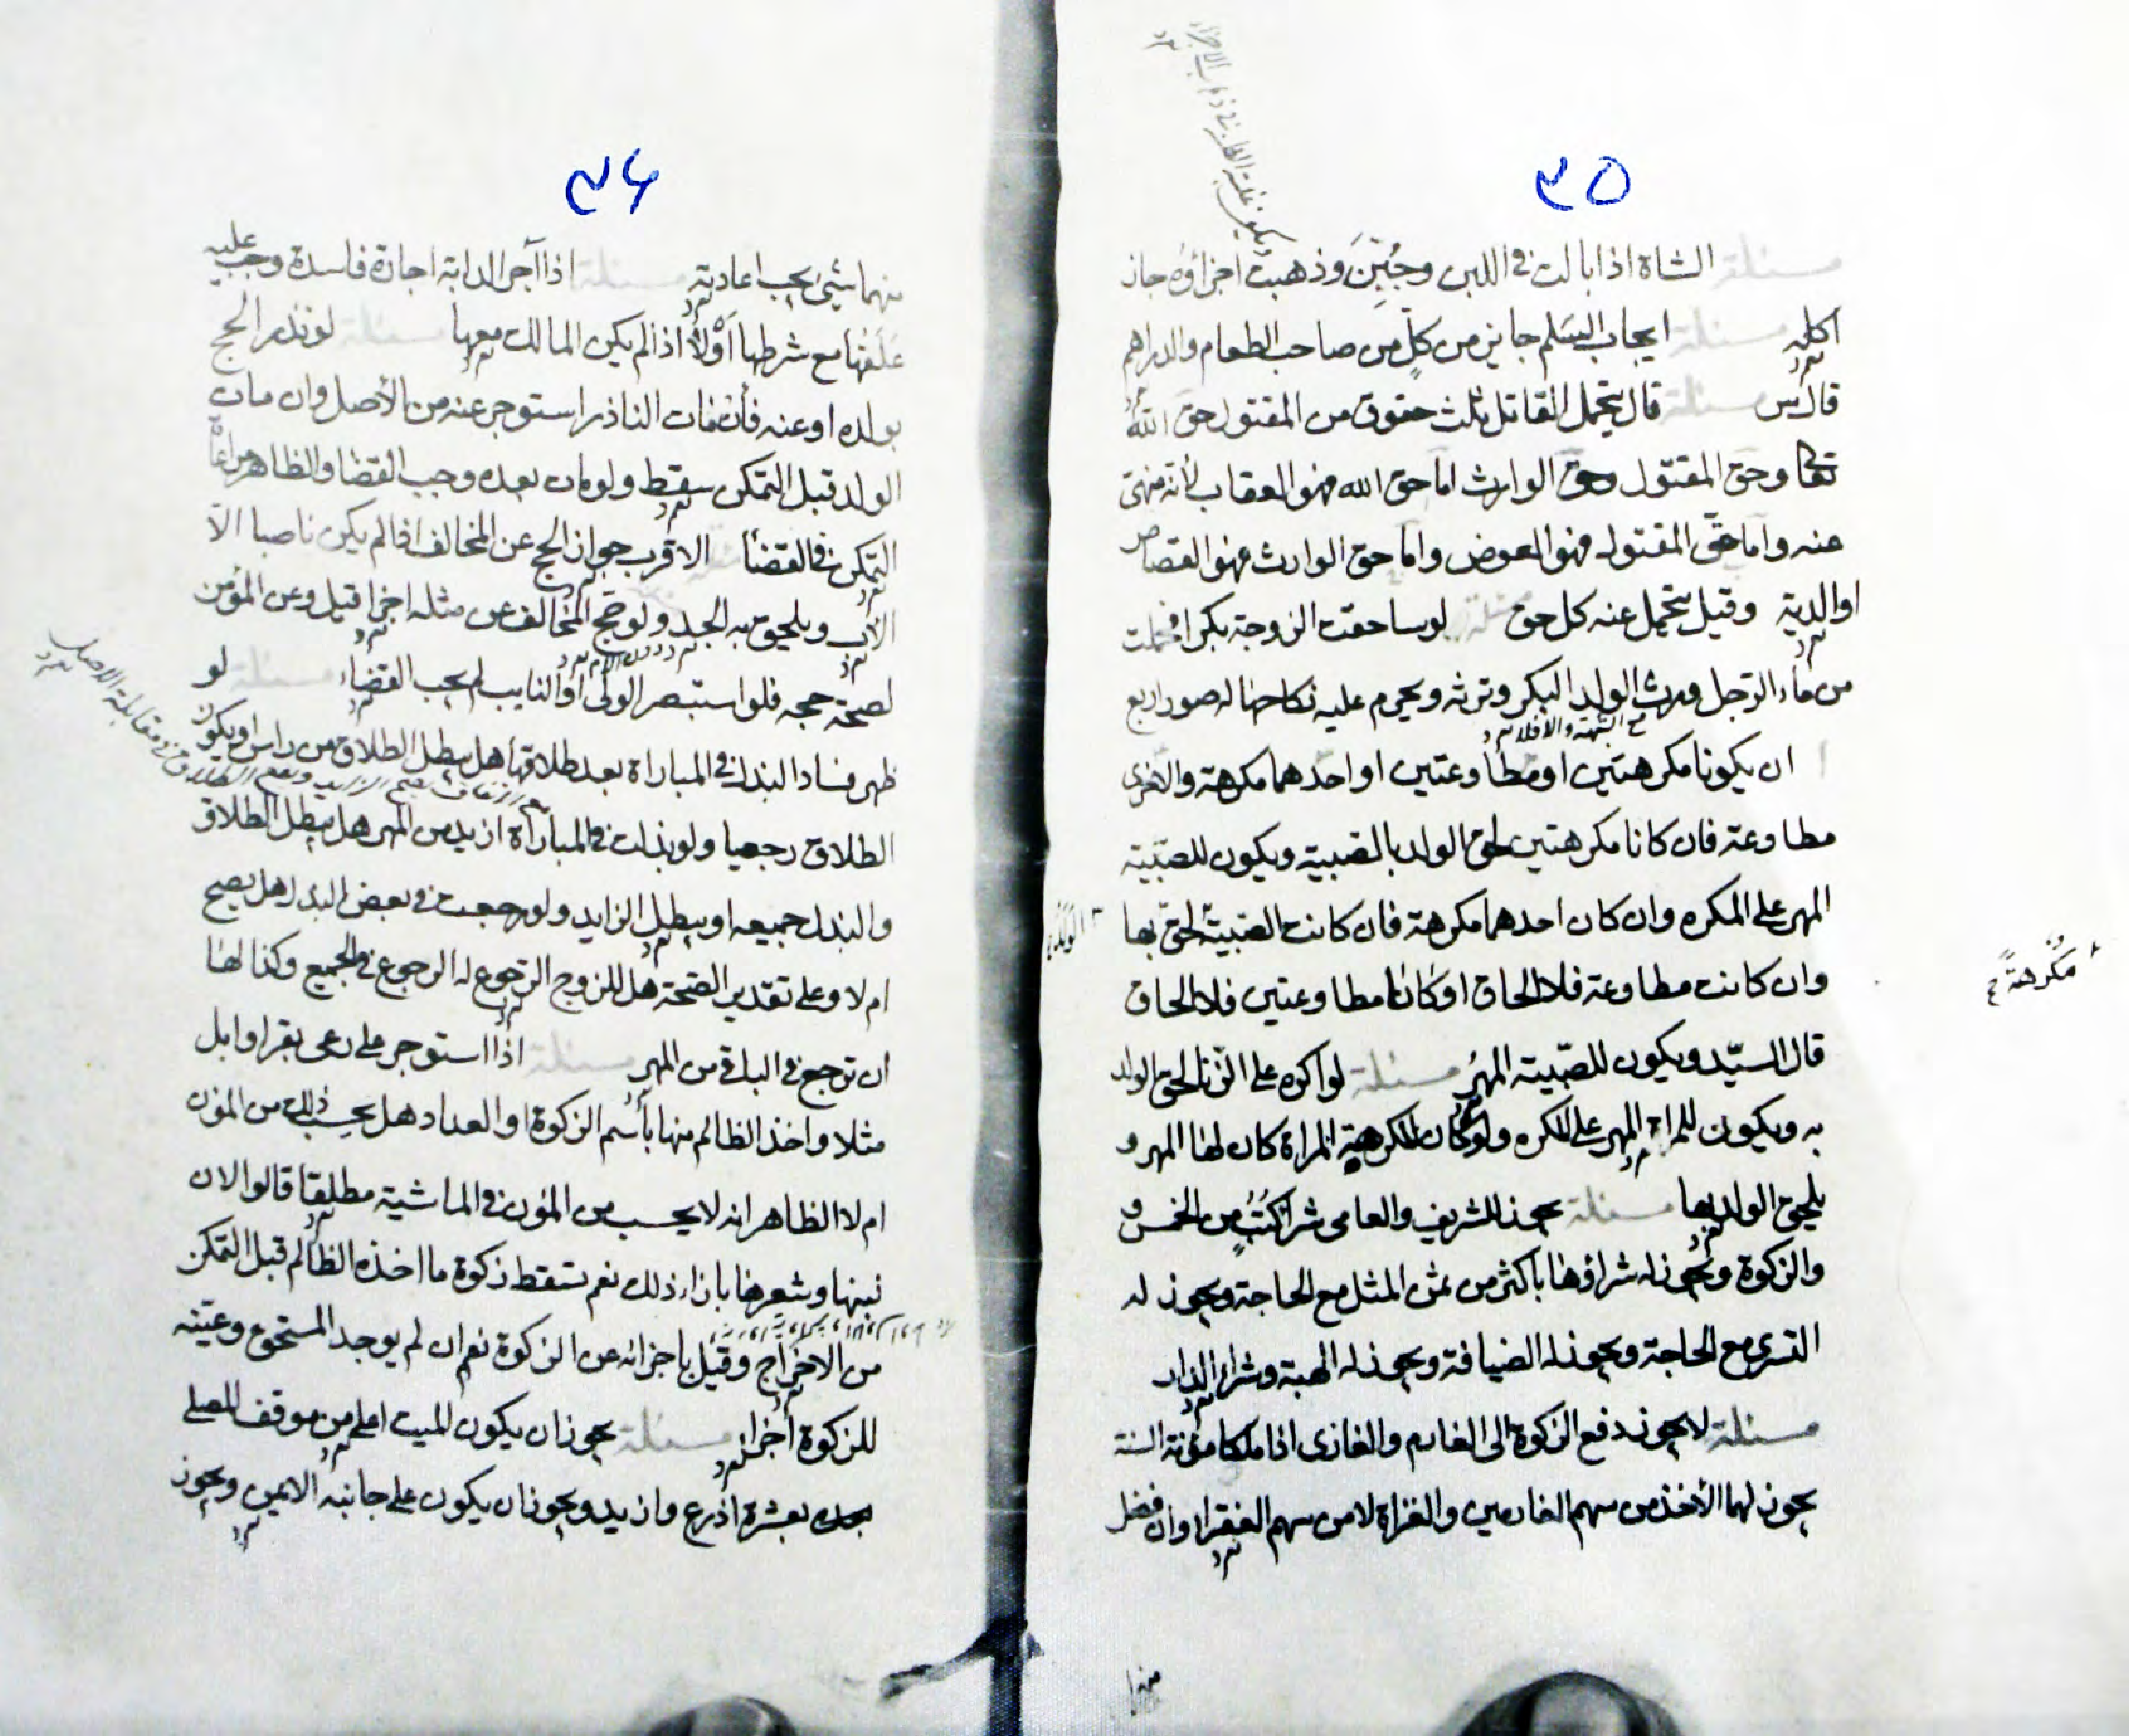 ٣٥
مسئلة الشاة اذا بالت في اللبن وجُبِّنَ وذهبت اجزاؤه جاز
اكله مسئلة ايجاب السلم جايز من كلٍ من صاحب الطعام والدراهم
قال س مسئلة قال يتحمل القاتل ثلث حقوق من المقتول حق الله
تعالى وحق المقتول وحق الوارث اما حق الله فهو العقاب لأنه نهى
عنه واما حق المقتول فهو العوض واما حق الوارث فهو القصاص
او الدية وقيل يتحمل عنه كل حق مسئلة لو ساحقت الزوجة بكرا فحملت
من ماء الرجل ورث الولد البكر وترثه ويحرم عليه نكاحها له صور اربع
مع الشبهة والا فلا
ان يكونا مكرهتين او مطاوعتين او احدهما مكرهة والاخرى
مطاوعة فان كانا مكرهتين لحق الولد بالصبية ويكون للصبية
المهر على المكره وان كان احدهما مكرهة فان كانت الصبية لحق بها
مُكرهةً
الولد
وان كانت مطاوعة فلا الحاق او كانا مطاوعتين فلا الحاق
قال السيّد ويكون للصّبية المهرُ مسئلة لو اكره على الزنا لحق الولد
به ويكون للمراة المهر على المكره ولو كان المكرهة المراة كان لها المهر و
يلحق الولد بها مسئلة يجوز للشريف والعامى شراء كُتُبٍ من الخمس و
والزكوة ويجوز له شراؤها باكثر من ثمن المثل مع الحاجة ويجوز له
التسرى مع الحاجة ويجوز له الضيافة ويجوز له الهبة وشراء الدار
مسئلة لا يجوز دفع الزكوة الى الغارم والغازى اذا ملكا مؤنة السنة
يجوز لهما الأخذ من سهم الغارمين والغزاة لا من سهم الفقراء وان فضل
منهما
٣٦
منهما شيئ يجب اعادته مسئلة اذا آجر الدابة اجارة فاسدة وجب عليه
عَلَفُها مع شرطها اَوْلا اذا لم يكن المالك معها مسئلة لو نذر الحج
بولده او عنه فأن مات الناذر استوجر عنه من الأصل وان مات
الولد قبل التمكن سقط ولو مات بعده وجب القضا والظاهر مراعاة
التمكن في القضأ مسئلة الاقرب جواز الحج عن المخالف اذا لم يكن ناصبا الّا
الأب ويلحق به الجد ولو حج المخالف عن مثله اجزا قيل وعن المؤمن
لصحة حجه فلو استبصر الولى او النايب لم يجب القضاء مسئلة لو
ظهر فساد البذل في المباراة بعد طلاقها هل يبطل الطلاق من راس او يكون
الطلاق رجعيا ولو بذلت في المباراة ازيد من المهر هل يبطل الطلاق
والبذل جميعه او يبطل الزايد ولو رجعت في بعض البذل هل يصح
ام لا وعلى تقدير الصّحة هل للزوج الرّجوع له الرجوع في الجميع وكذا لها
ان ترجع في الباقى من المهر مسئلة اذا استوجر على رعى بقر او ابل
مثلا واخذ الظالم منها بأسم الزكوة او العداد هل يحسب ذلك من المؤن
ام لا الظاهر انه لا يحسب من المؤن في الماشية مطلقا قالوا لان
لبنها وشعرها بازاء ذلك نعم تسقط زكوة ما اخذه الظالم قبل التمكن
من الاخراج وقيل باجزائه عن الزكوة نعم ان لم يوجد المستحق وعيّنه
للزكوة أجزا مسئلة يجوز ان يكون الميت اعلى من موقف المصلى
بعشرة اذرع وازيد ويجوز ان يكون على جانبه الايمن ويجوز